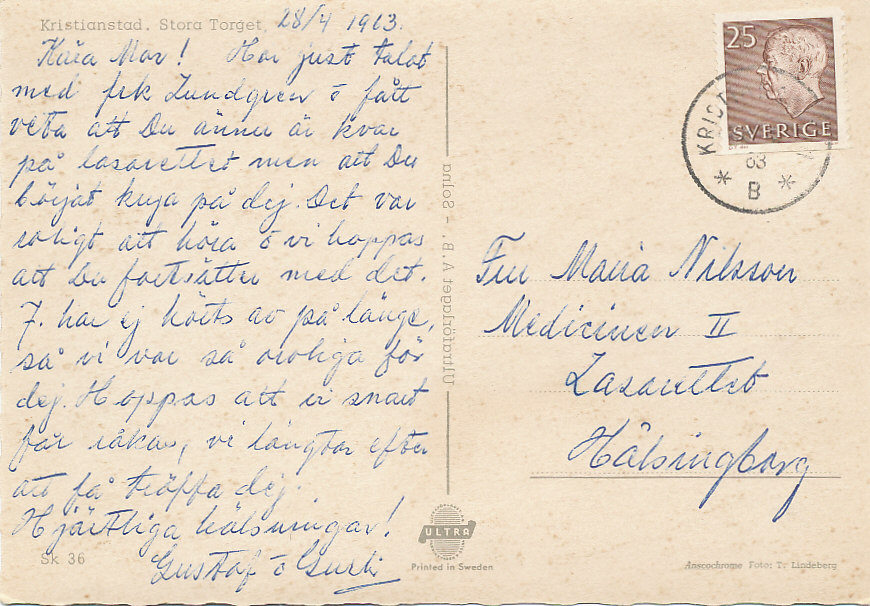 Kristianstad. Stora Torget
28/4 1963.
Kära Mor! Har just talat
med frk Lundgren o fått
veta att Du ännu är kvar
på lasarettet men att Du
börjat kryа på dej. Det var
roligt att höra o vi hoppas
att Du fortsätter med det.
J. har ej hörts av på länge,
så vi var så oroliga för
dej. Hoppas att vi snart
får råkas, vi längtar efter
att få träffa dej.
Hjärtliga hälsningar!
Gustaf o Gurli
Sk 36
Ultraförlaget A.B. - Solna
ULTRA
Printed in Sweden
25
SVERIGE
KRIST
63
* B *
Fru Maria Nilsson
Medicinen II
Lasarettet
Hälsingborg
Anscochrome Foto: Tr. Lindeberg